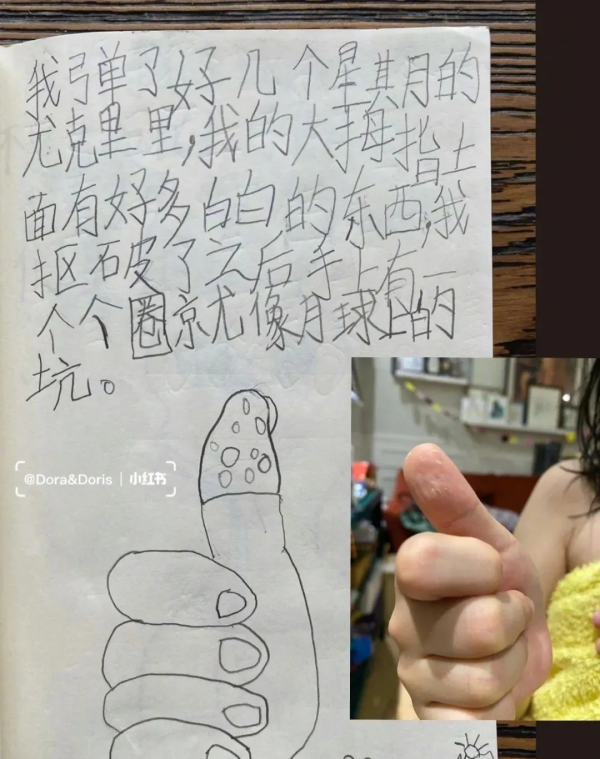 我弹了好几个星期的
尤克里里,我的大拇指上
面有好多白白的东西,我
抠破了之后手上有一
个个圈就像月球上的
坑。
@Dora&Doris | 小红书